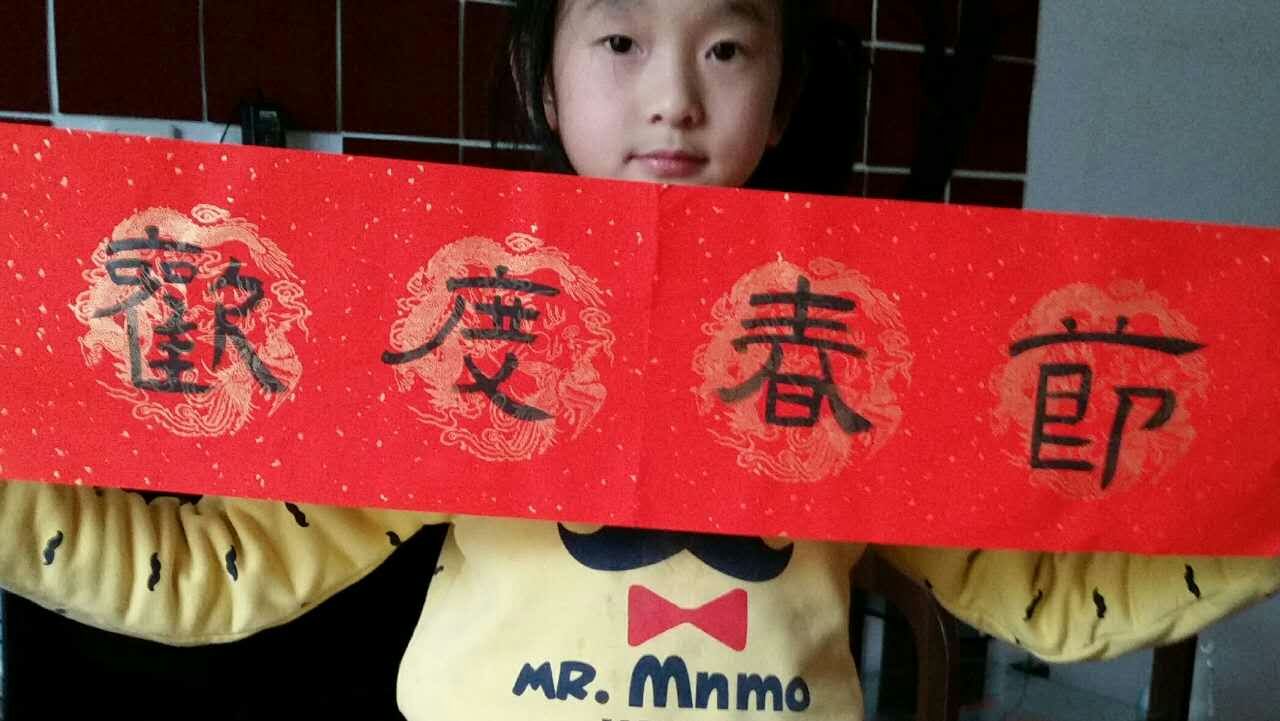 歡度春節
MR. Mnmo